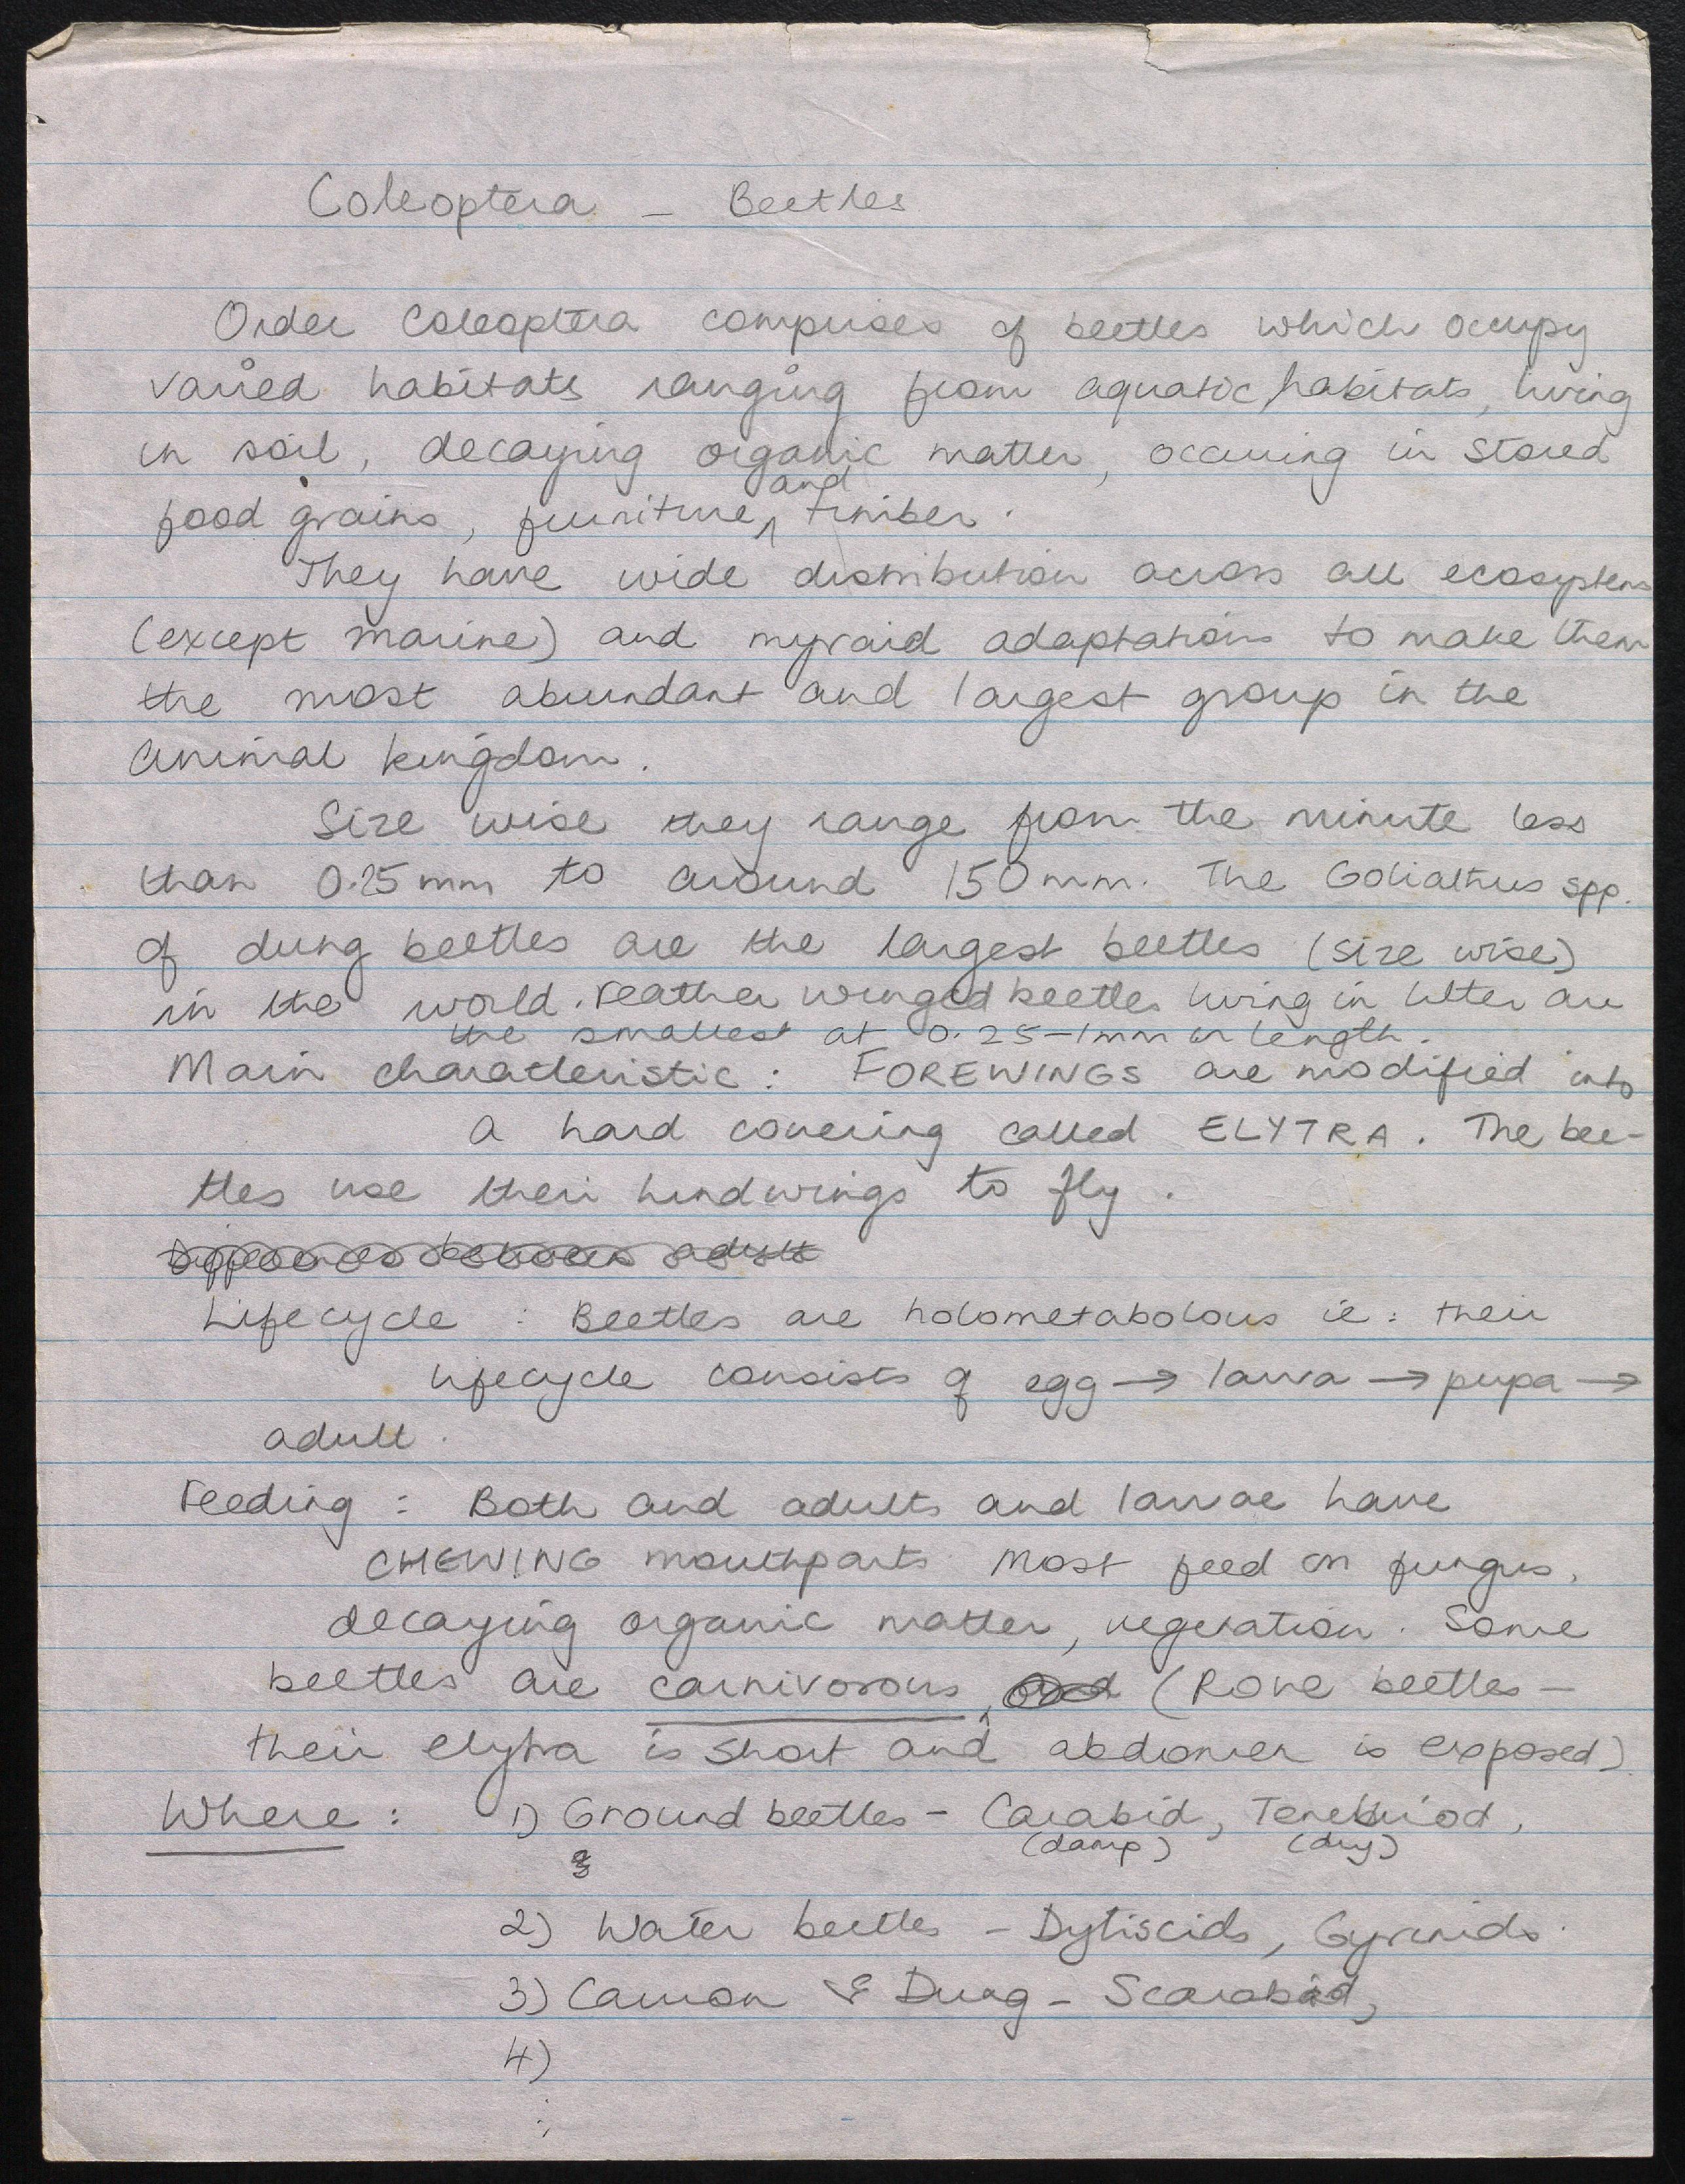 Coleoptera - Beetles
Order Coleoptera comprises of beetles which occupy
varied habitats ranging from aquatic habitats, living
in soil, decaying organic matter, occuring in stored
and
food grains, furniture, timber.
They have wide distribution across all ecosystems
(except marine) and myraid adaptations to make them
the most abundant and largest group in the
animal kingdom.
Size wise they range from the minute less
than 0.25 mm to around 150 mm. The Goliathus spp.
of dung beetles are the largest beetles (size wise)
in the world. Feather winged beetles living in litter are
the smallest at 0.25-1mm in length.
Main charatteristic : FOREWINGS are modified into
a hard covering called ELYTRA. The bee-
tles use their hindwings to fly.
Differences between adult
Lifecycle : Beetles are holometabolous ie: their
lifecycle consists of egg → larva → pupa →
adult.
Feeding : Both and adults and larvae have
CHEWING mouthparts. Most feed on fungus,
decaying organic matter, vegetation. Some
beetles are carnivorous, and (Rove beetles -
their elytra is short and abdomen is exposed)
Where : 1) Ground beetles - Carabid, Tenebriod,
(damp) (dry)
2) Water beetles - Dytiscids, Gyrinids.
3) Carrion & Dung - Scarabid,
4)
: